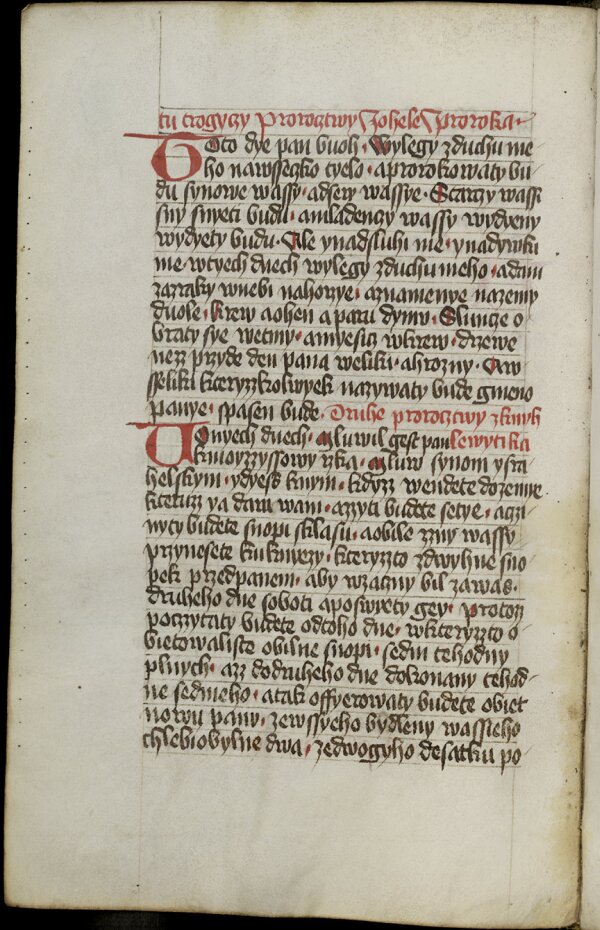 tu trogyczy Proroctwy Johele proroka
Toto dye pan buoh · Wylegy zduchu me
ho nawsseczko tyelo · aprorokowaty bu
du synowe wassy · adsery wassye · Starczy wassi
sny snyeti budu · amladenczy wassy wydyeny
wydyety budu · Ale ynadsluhi me · ynadywki
me wtyech dnech wylegy zduchu meho · adam
zazraky wnebi nahorzye · aznamenye nazemy
duole · krew aohen aparu dymu · Sluncze o
braty sye wetmy · amyesicz wkrew · drzewe
nezz przyde den pana weliki · ahrozny · Aw
sseliki kteryzzkolwyek nazywaty bude gmeno
panye · spasen bude · Druhe proroctwy zknyh
Onyech dnech · Mluwil gest pan lewytika
kmoyzyssowy rzka · Mluw synom ysra
helskym · ydyess knym · kdyzz wendete dozemye
kteruzz ya dam wam · azzyti budete setye · aczi
nyty budete snopi sklasu · aobile zzny wassy
przynesete kuknyezy · kteryzto zdwyhne sno
pek przedpanem · aby wzaczny bil zawas ·
druheho dne soboti aposwyety gey · protozz
poczytaty budete odtoho dne · wkteryzto o
bietowaliste obilne snopi · sedm tehodny
plnych · azz dodruheho dne dokonany tehod
ne sedmeho · atak offyerowaty budete obiet
nowu panu · zewssyeho bydleny wassieho
chlebiobylne dwa · zedwogyho desatku po